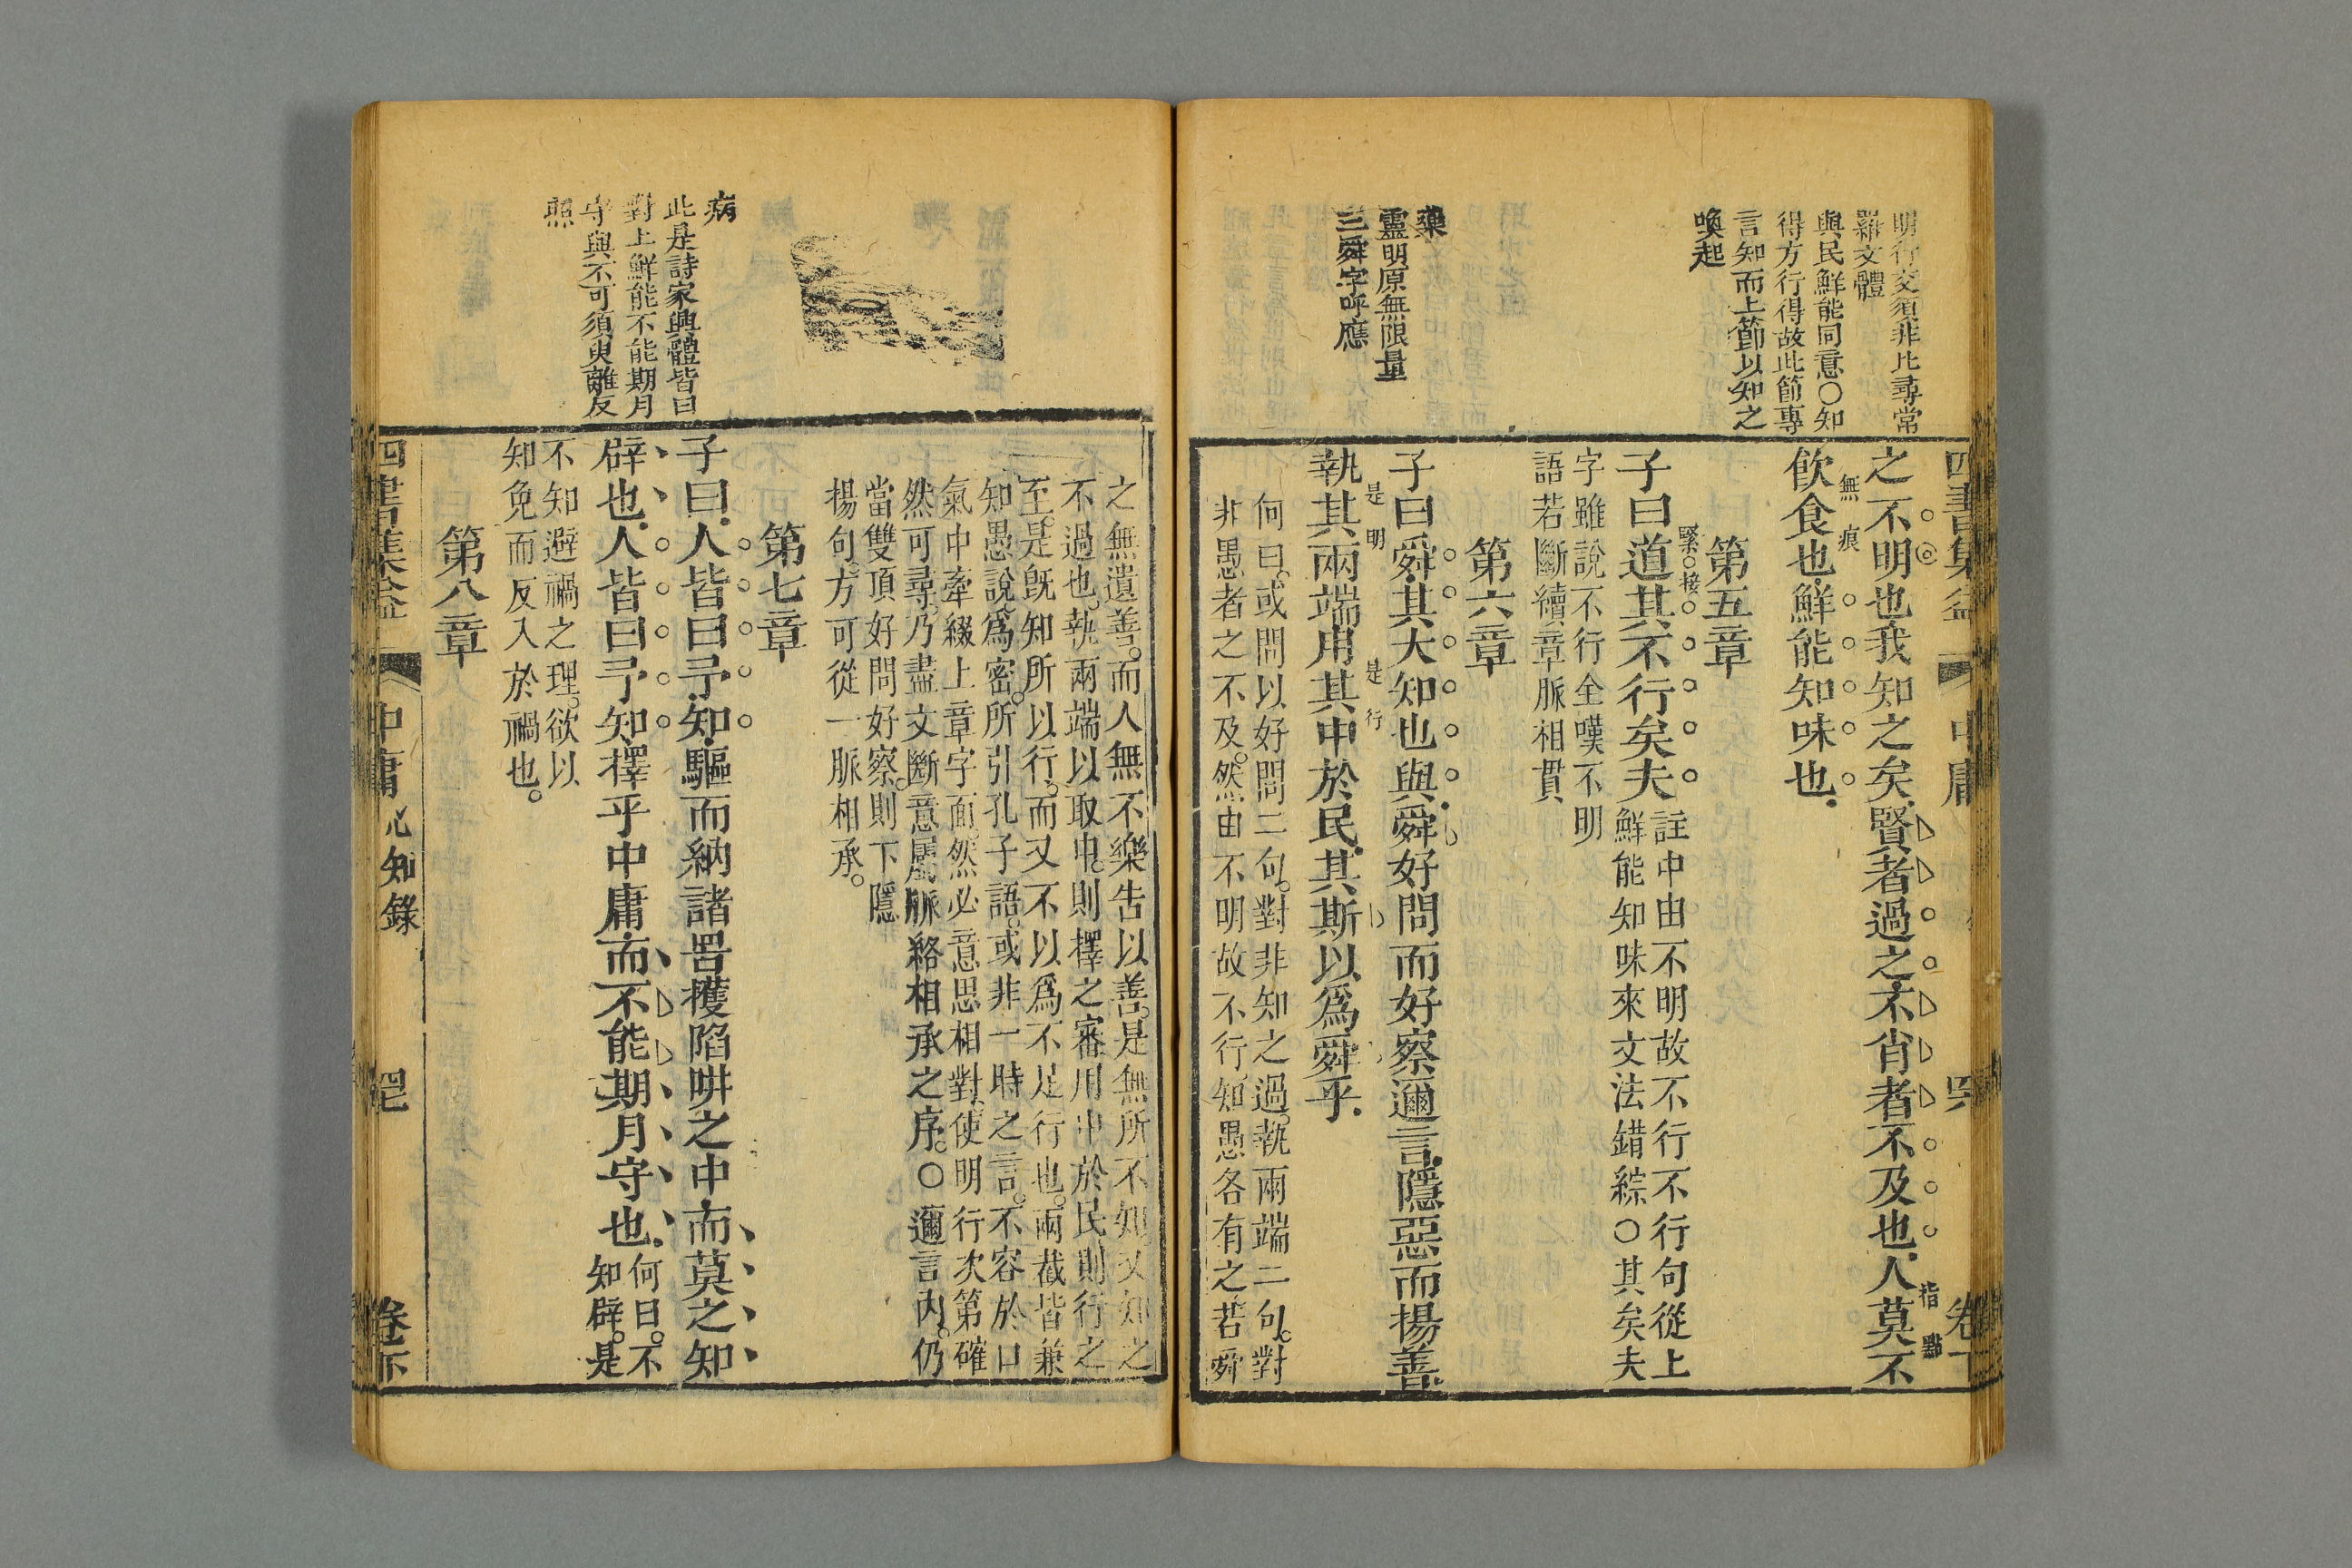 明行交須非比尋常
羅文體
與民鮮能同意○知
得方行得故此節專
言知而上節以知之
喚起
藥
靈明原無限量
三舜字呼應
四書集益
中庸
四
卷下
之不明也我知之矣賢者過之不肖者不及也人莫不
指點
無痕
飲食也鮮能知味也
第五章
緊接
子曰道其不行矣夫
註中由不明故不行不行句從上
鮮能知味來文法錯綜○其矣夫
字雖說不行全嘆不明
語若斷續章脈相貫
第六章
子曰舜其大知也與舜好問而好察邇言隱惡而揚善
是明
是行
執其兩端用其中於民其斯以爲舜乎
何曰或問以好問二句對非知之過執兩端二句對
非愚者之不及然由不明故不行知愚各有之若舜
病
此是詩家興體皆曰
對上鮮能不能期月
守與不可須臾離反
照
之無遺善。而人無不樂告以善。是無所不知又知之
不過也。執兩端以取中。則擇之審用中於民則行之
至。是旣知所以行。而又不以爲不足行也。兩截皆兼
知愚說爲密。所引孔子語。或非一時之言。不容於口
氣中牽綴上章字面。然必意思相對。使明行次第確
然可尋。乃盡文斷意屬脈絡相承之序。○邇言內。仍
當雙頂好問好察。則下隱
揚句。方可從一脈相承。
第七章
子曰人皆曰予知驅而納諸罟擭陷阱之中而莫之知
辟也人皆曰予知擇乎中庸而不能期月守也
何曰。不
知辟。是
不知避禍之理。欲以
知免而反入於禍也。
第八章
四書集益
中庸
知錄
四
卷下